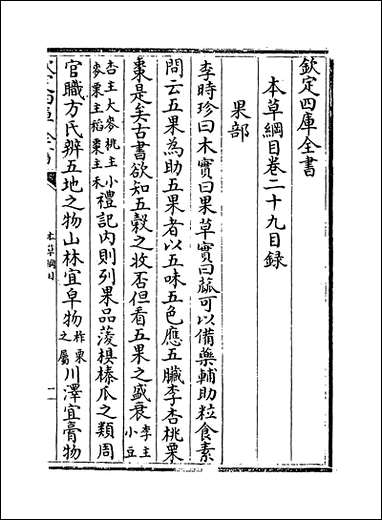 欽定四庫全書
本草綱目卷二十九目録
果部
李時珍曰木實曰果草實曰蓏可以備藥輔助粒食素
問云五果為助五果者以五味五色應五臟李杏桃栗
棗是矣古書欲知五穀之收否但看五果之盛衰李主小豆
杏主大麥桃主小麥栗主稻棗主禾禮記内則列果品菱椇榛瓜之類周
官職方氏辨五地之物山林宜阜物柞栗之屬川澤宜膏物
本草綱目
一